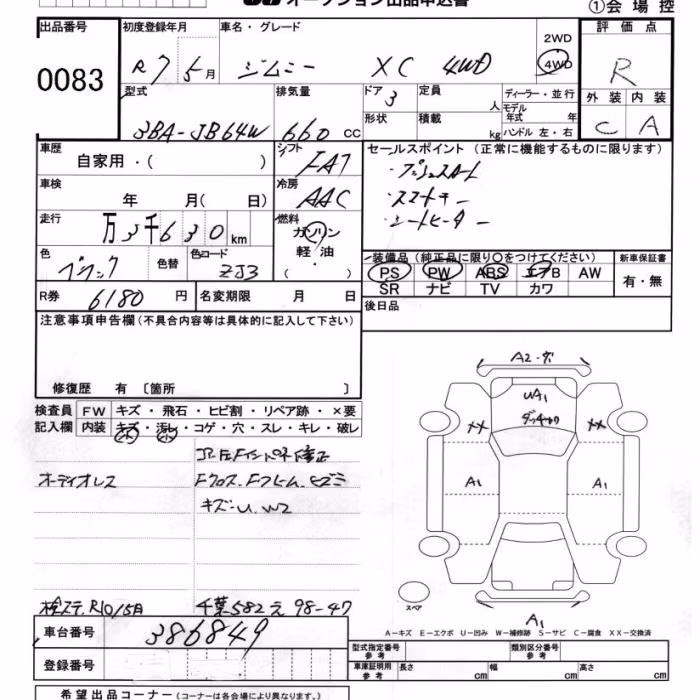 オークション出品申込書
①会場控
出品番号 初度登録年月 車名・グレード 2WD 4WD 評価点
0083 R7 5月 ジムニー XC 4WD R
型式 排気量 ドア 定員 人 ディーラー・並行 外装 内装
3BA-JB64W 660 cc 3 モデル年式 年 C A
形状 積載 kg ハンドル 左・右
車歴 自家用・( ) シフト FAT セールスポイント(正常に機能するものに限ります)
・プッシュスタート
車検 年 月( 日) 冷房 AAC
・スマートキー
・シートヒーター
走行 万3千630km 燃料 ガソリン・軽油・
色 ブラック 色替 色コード ZJ3
装備品(純正品に限り○をつけてください) 新車保証書
PS PW ABS エアB AW 有・無
SR ナビ TV カワ
R券 6180円 名変期限 月 日 後日品
注意事項申告欄(不具合内容等は具体的に記入して下さい)
修復歴 有〔箇所 〕
検査員記入欄 FW キズ・飛石・ヒビ割・リペア跡・×要
内装 キズ・汚レ・コゲ・穴・スレ・キレ・破レ
オーディオレス
Fクロス、Fフレーム、ヒズミ
キズ・U、W2
検ステ、R10/5月 千葉582え98-47
A2・ダ
UA1
XX XX
A1 A1
A1
スペア
A-キズ E-エクボ U-凹み W-補修跡 S-サビ C-腐食 XX-交換済
車台番号 386849
型式指定番号 参考 類別区分番号 参考
登録番号
車庫証明用 参考 長さ cm 幅 cm 高さ cm
希望出品コーナー(コーナーは各会場により異なります。)